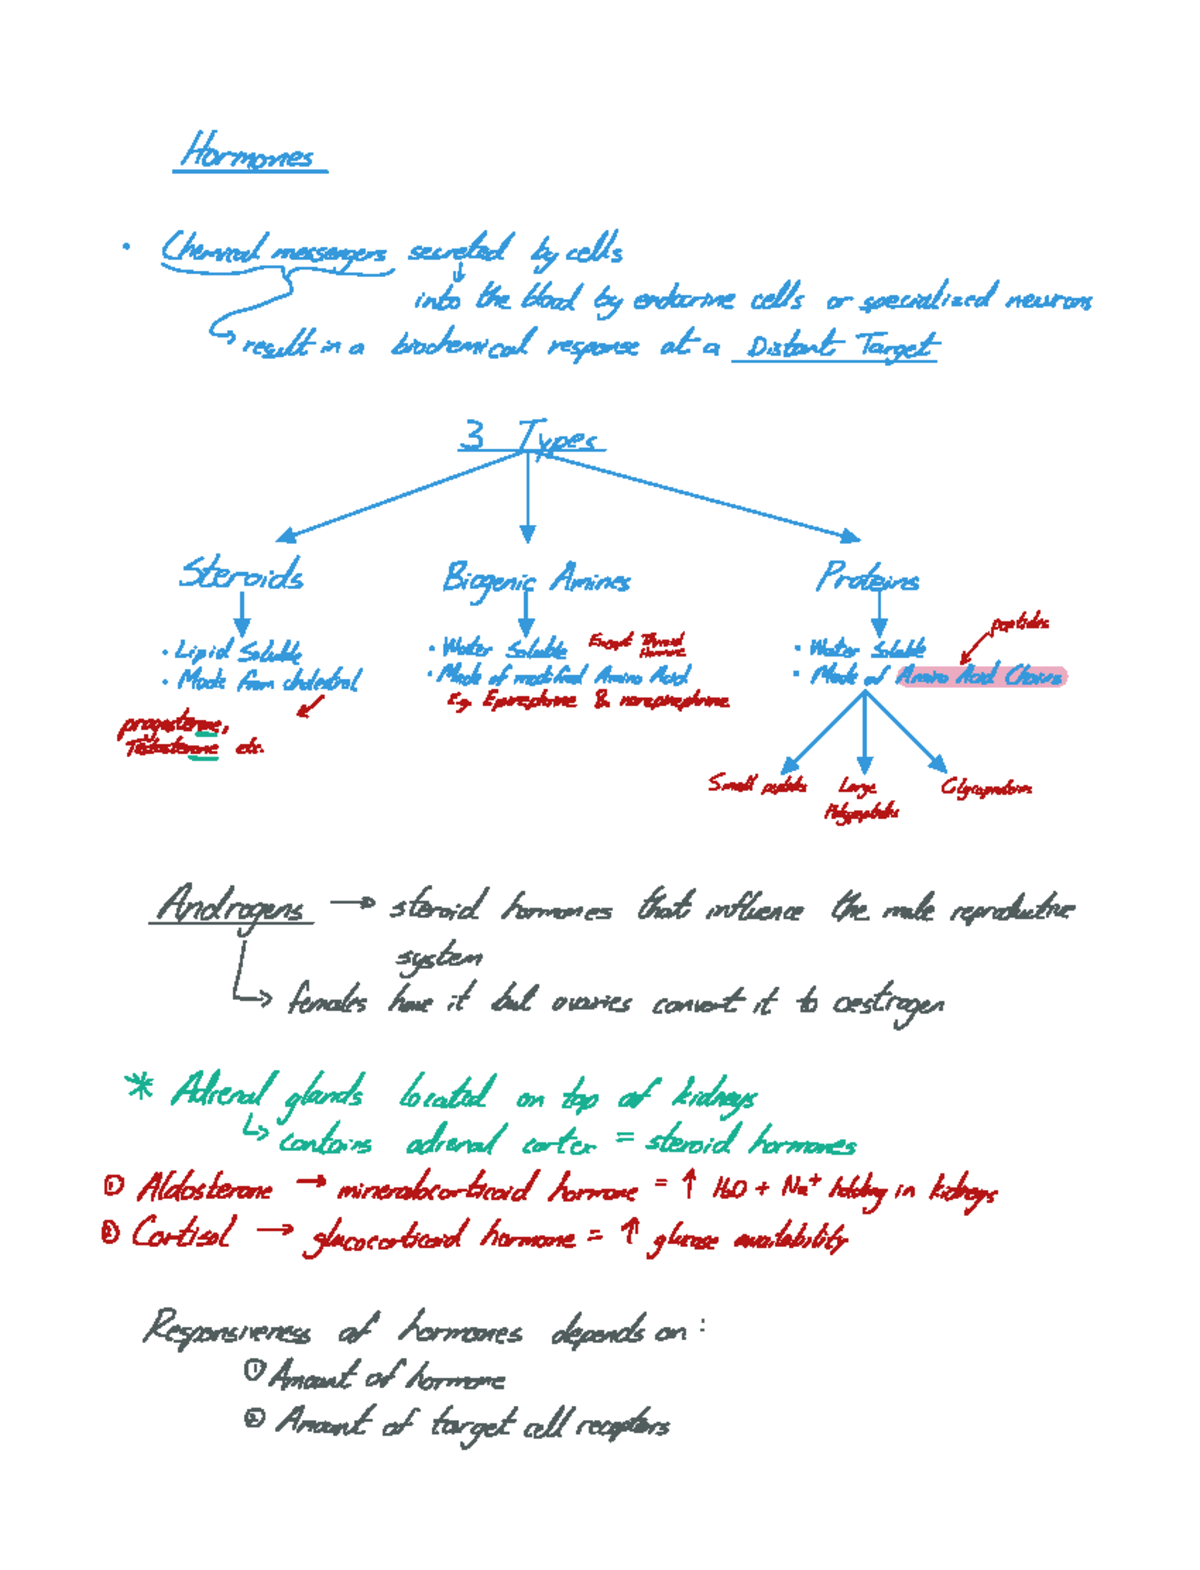 Hormones
• Chemical messengers secreted by cells
into the blood by endocrine cells or specialized neurons
result in a biochemical response at a Distant Target
3 Types
Steroids
• Lipid Soluble
• Made from cholestral
progesterone,
Testosterone etc.
Biogenic Amines
• Water Soluble Except Thyroid Hormone
• Made of modified Amino Acid
E.g. Epinephrine & norepinephrine
Proteins
peptides
• Water Soluble
• Made of Amino Acid Chains
Small peptides
Large
Polypeptides
Glycoproteins
Androgens → steroid hormones that influence the male reproductive
system
↳ females have it but ovaries convert it to oestrogen
* Adrenal glands located on top of kidneys
↳ contains adrenal corter = steroid hormones
① Aldosterone → mineralocorticoid hormone = ↑ H₂O + Na⁺ holding in kidneys
② Cortisol → glucocorticoid hormone = ↑ glucose availability
Responsiveness of hormones depends on :
① Amount of hormone
② Amount of target cell receptors